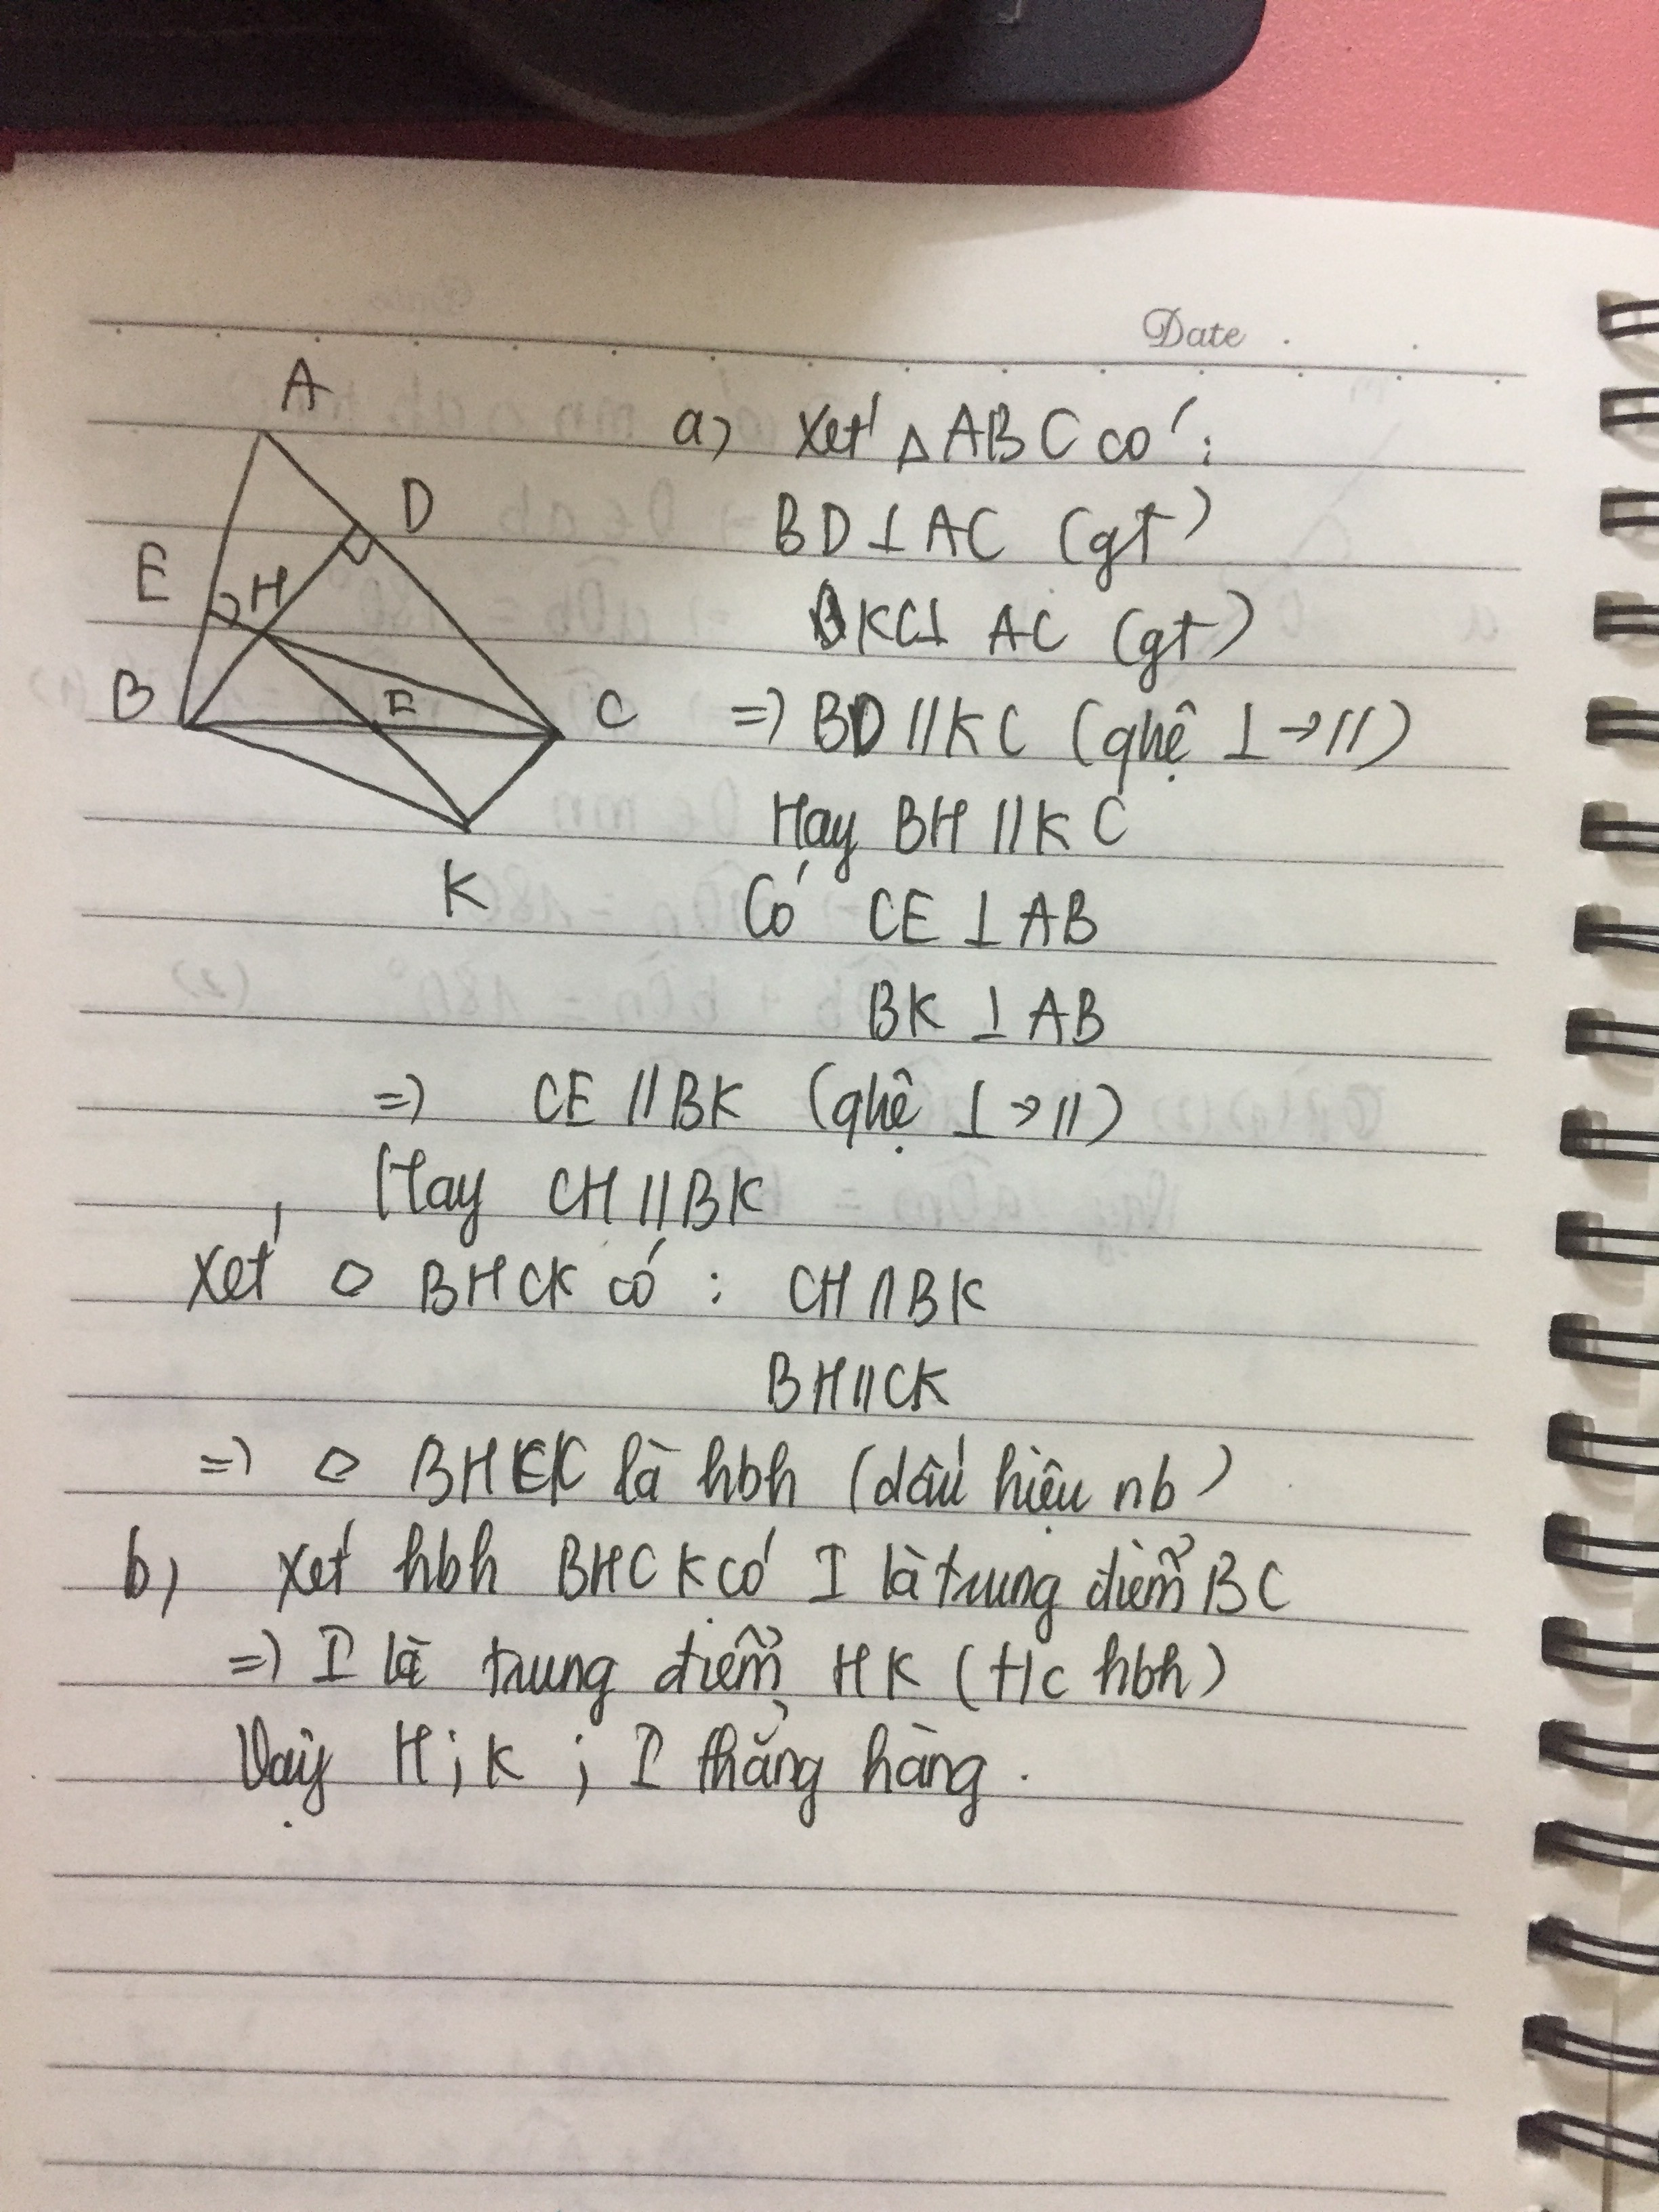 Date
A
D
E
H
B
I
C
K
a) Xét △ABC có:
BD⊥AC (gt)
KC⊥ AC (gt)
=> BD//KC (qhệ ⊥→//)
Hay BH//KC
Có CE⊥AB
BK⊥AB
=> CE//BK (qhệ ⊥→//)
Hay CH//BK
Xét ▱ BHCK có : CH//BK
BH//CK
=> ▱ BHCK là hbh (dấu hiệu nb)
b) Xét hbh BHCK có I là trung điểm BC
=> I là trung điểm HK (t/c hbh)
Vậy H; K ; I thẳng hàng.